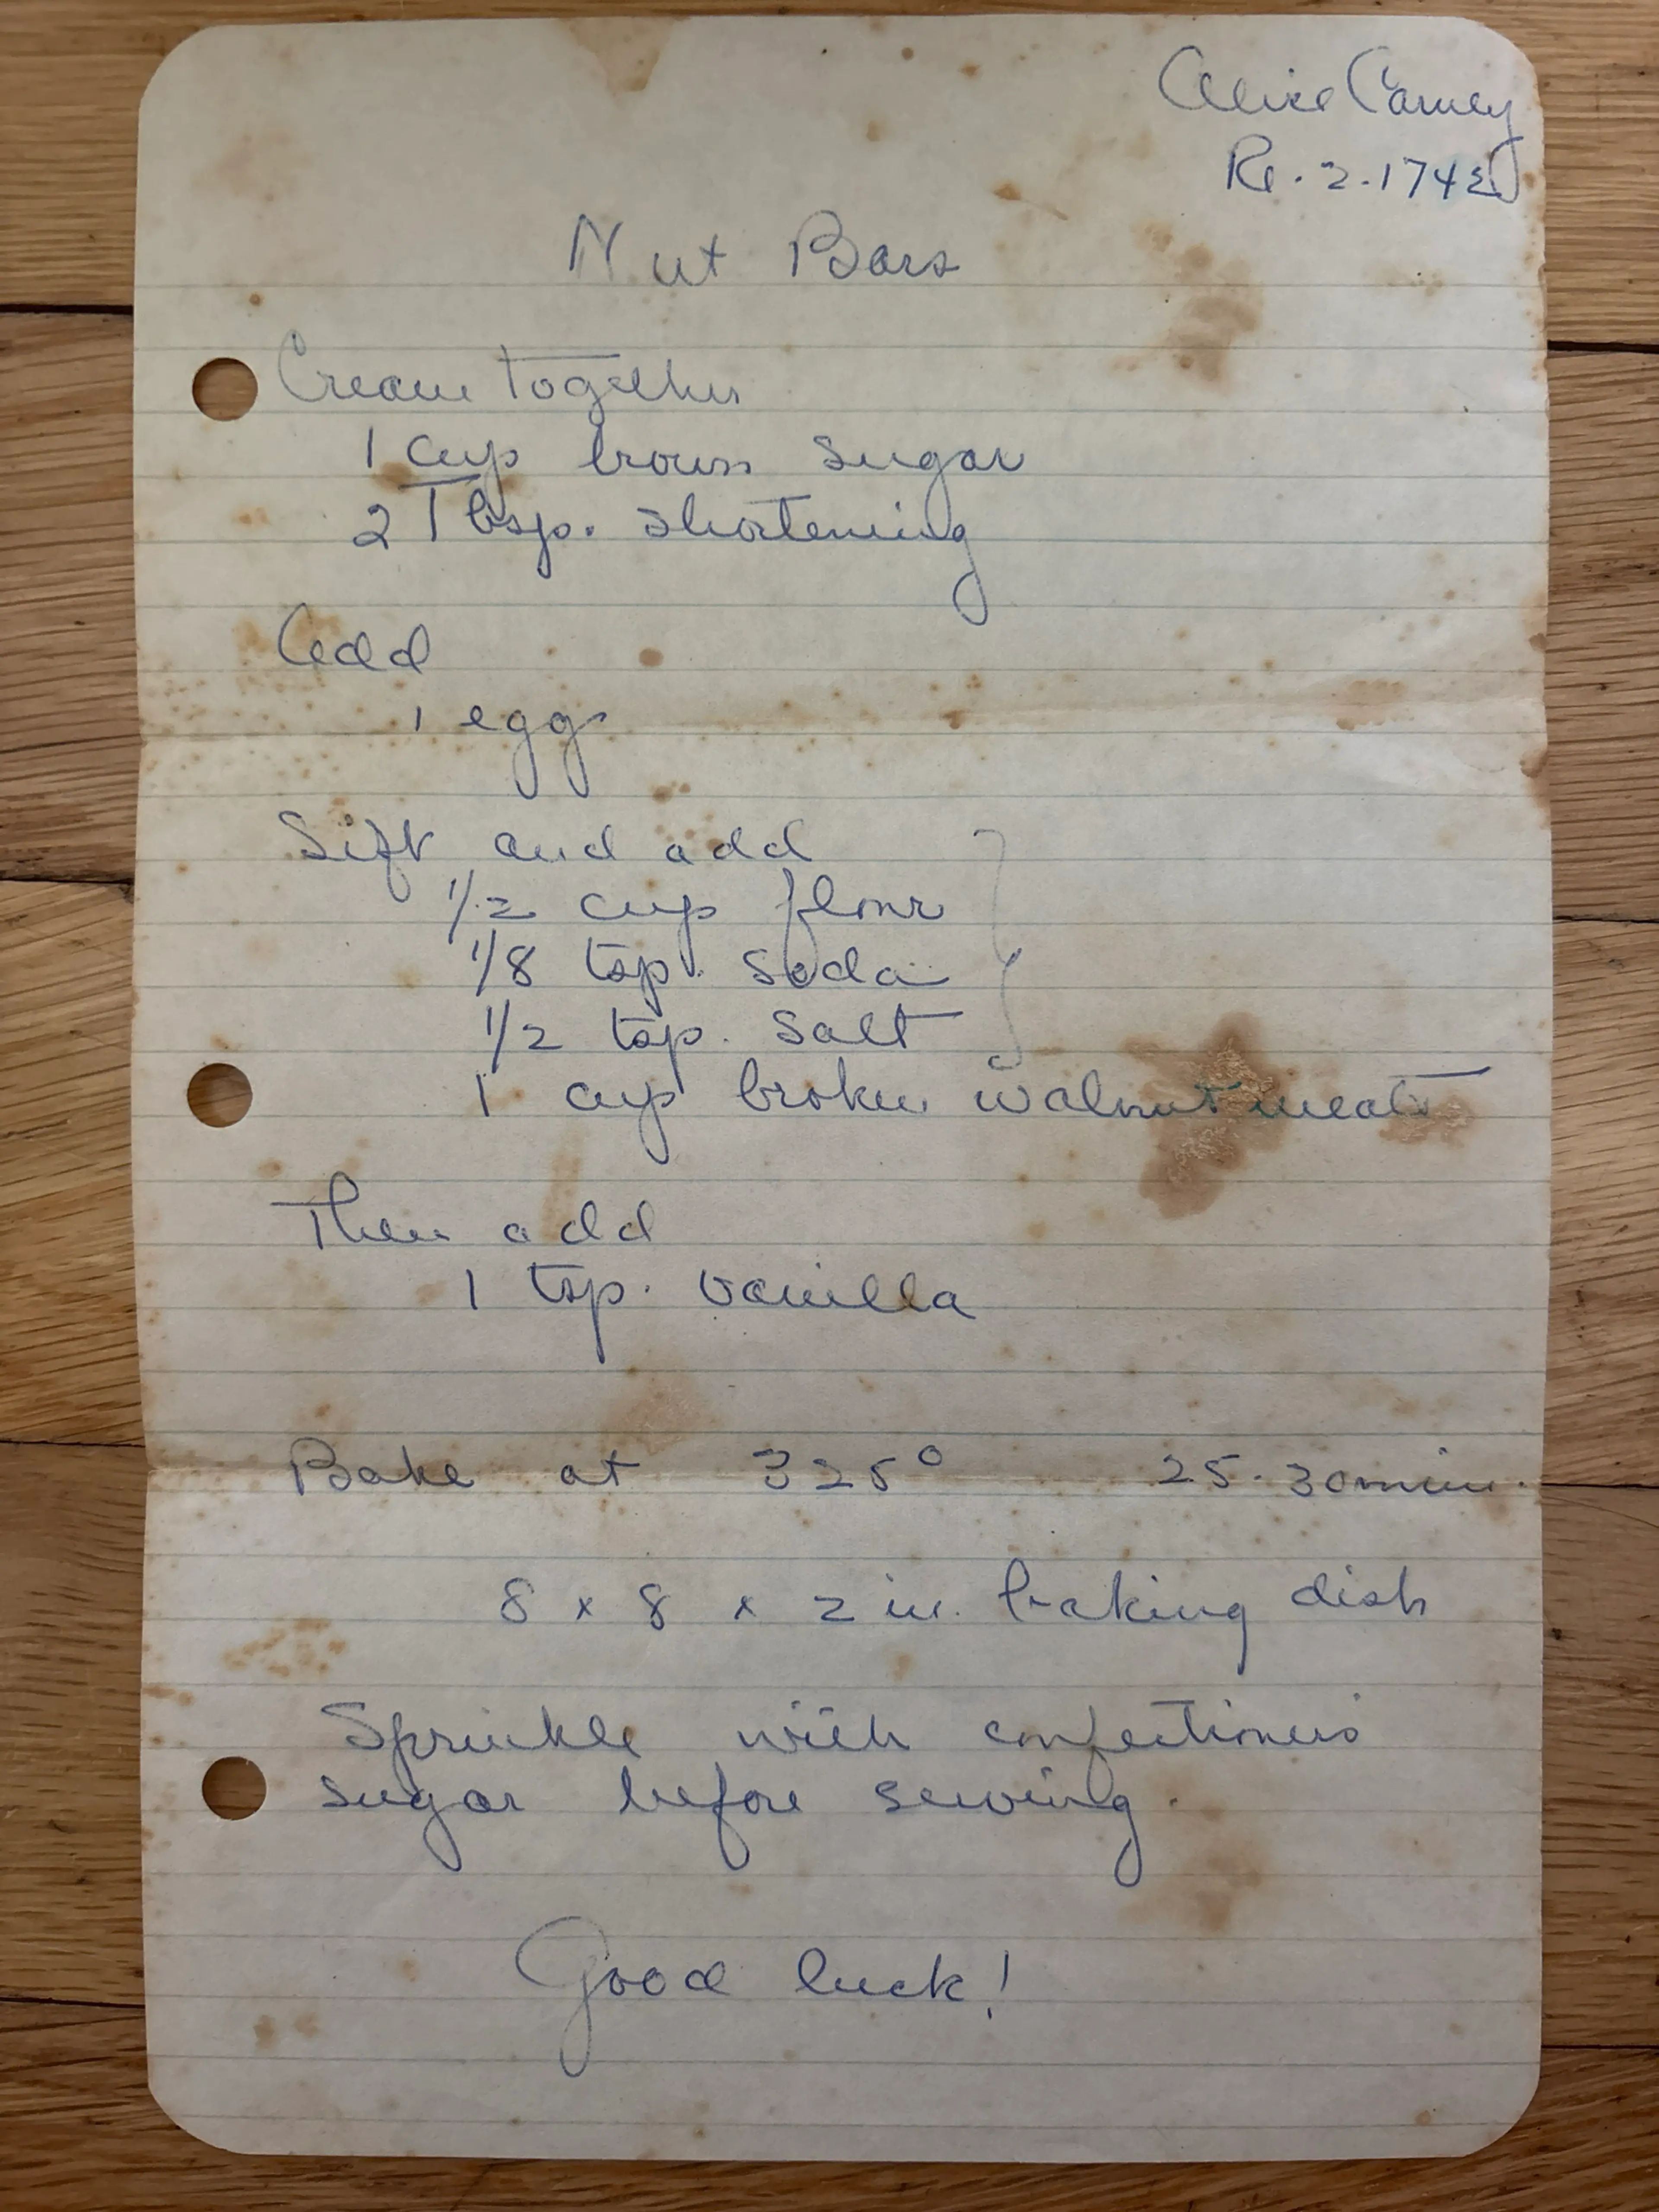 Alice Carney
Re. 2.1742
Nut Bars
Cream together
1 cup brown sugar
2 Tbsp. shortening
Add
1 egg
Sift and add
1/2 cup flour
1/8 tsp. soda
1/2 tsp. salt
1 cup broken walnut meats
Then add
1 tsp. vanilla
Bake at 325° 25-30 min.
8 x 8 x 2 in. baking dish
Sprinkle with confectioners'
sugar before serving.
Good luck!